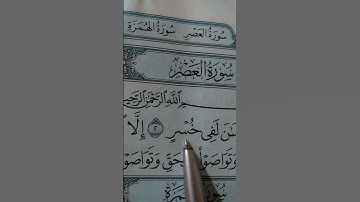 سُورَةُ العَصْرِ سُورَةُ الهُمَزَةِ
سُورَةُ الْعَصْرِ
اللَّهِ الرَّحْمَٰنِ الرَّحِيمِ
لَفِي خُسْرٍ ٢ إِلَّا
وَتَوَاصَوْا حَقِّ وَتَوَاصَوْ
سُورَةُ